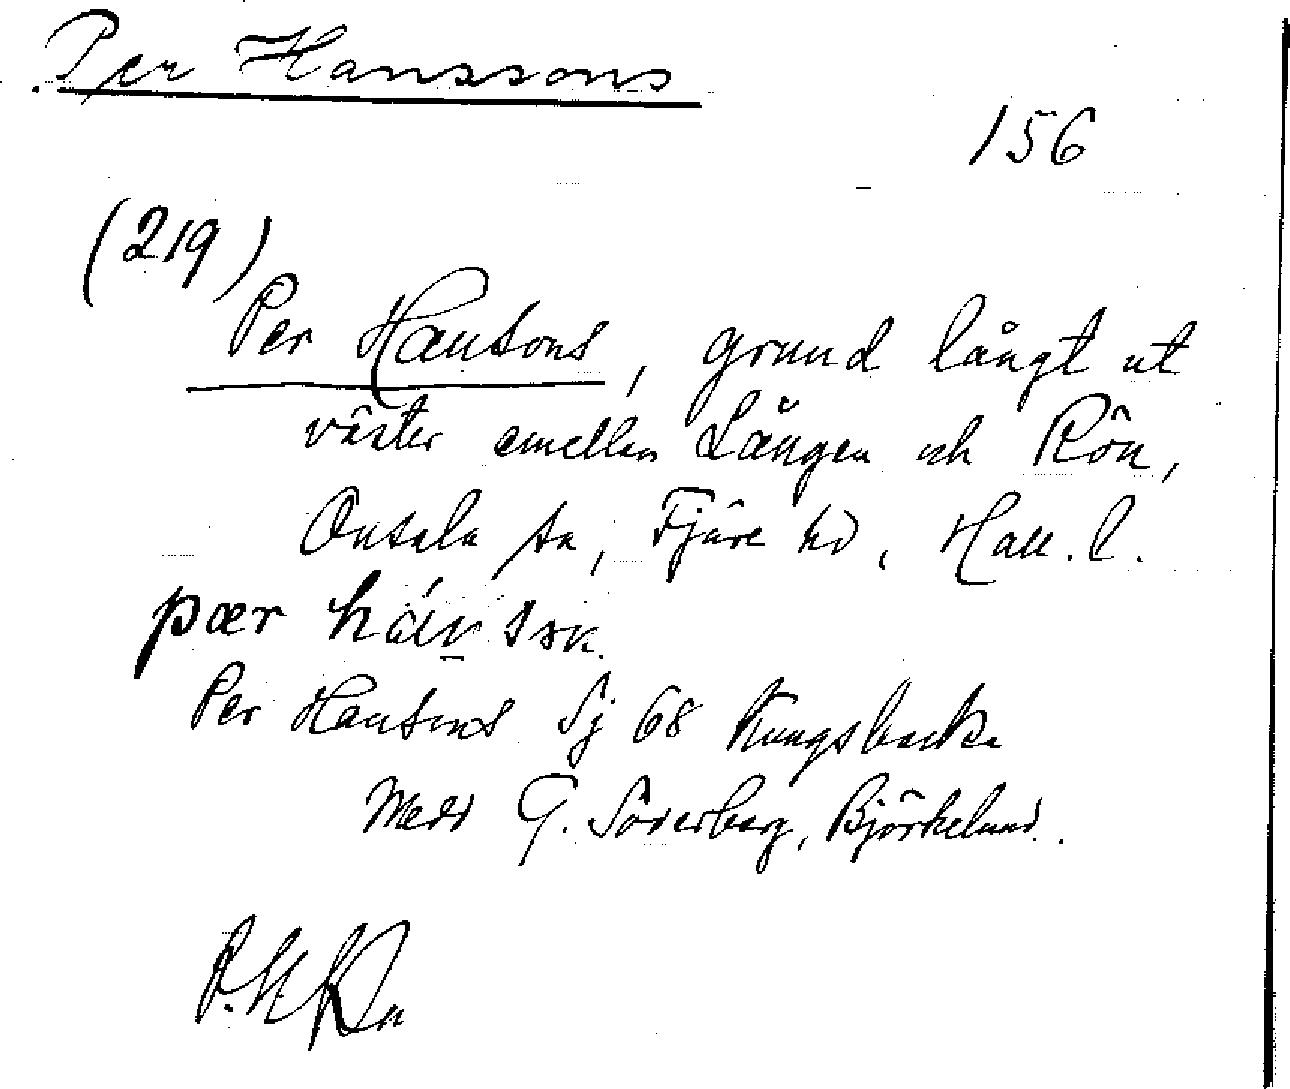 Per Hanssons
156
(219)
Per Hansons, grund långt ut
väster emellan Lången och Rön,
Onsala sn, Fjäre hd, Hall. l.
pær
Per Hansons Sj 68 Kungsbacka
Medd G. Söderberg, Björkelund.